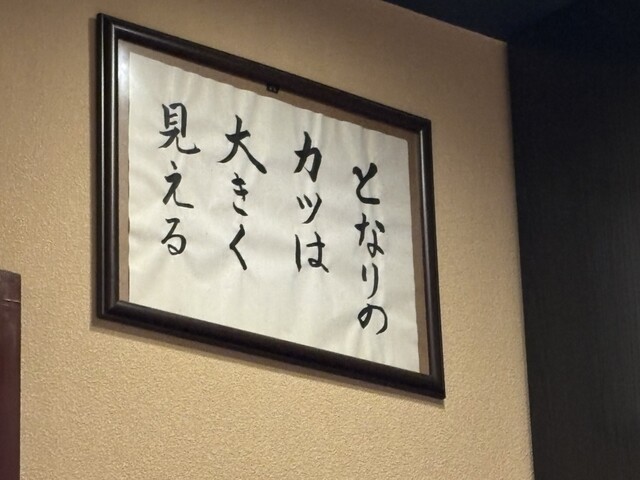 となりの
カツは
大きく
見える